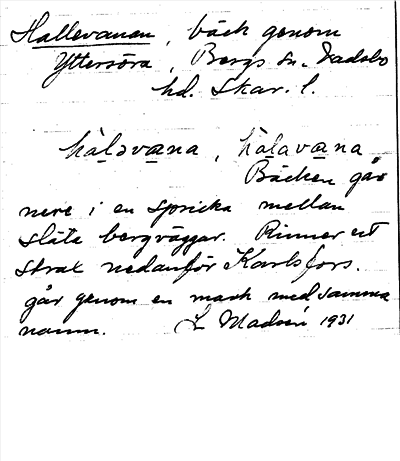 Hallevanan, bäck genom
Yttersöra, Bergs sn. Vadsbo
hd. Skar. l.
hàləva̲na, hàlava̲na
Bäcken går
nere i en spricka mellan
släta bergväggar. Rinner ut
strax nedanför Karlsfors.
går genom en mark med samma
namn. L Madsén 1931